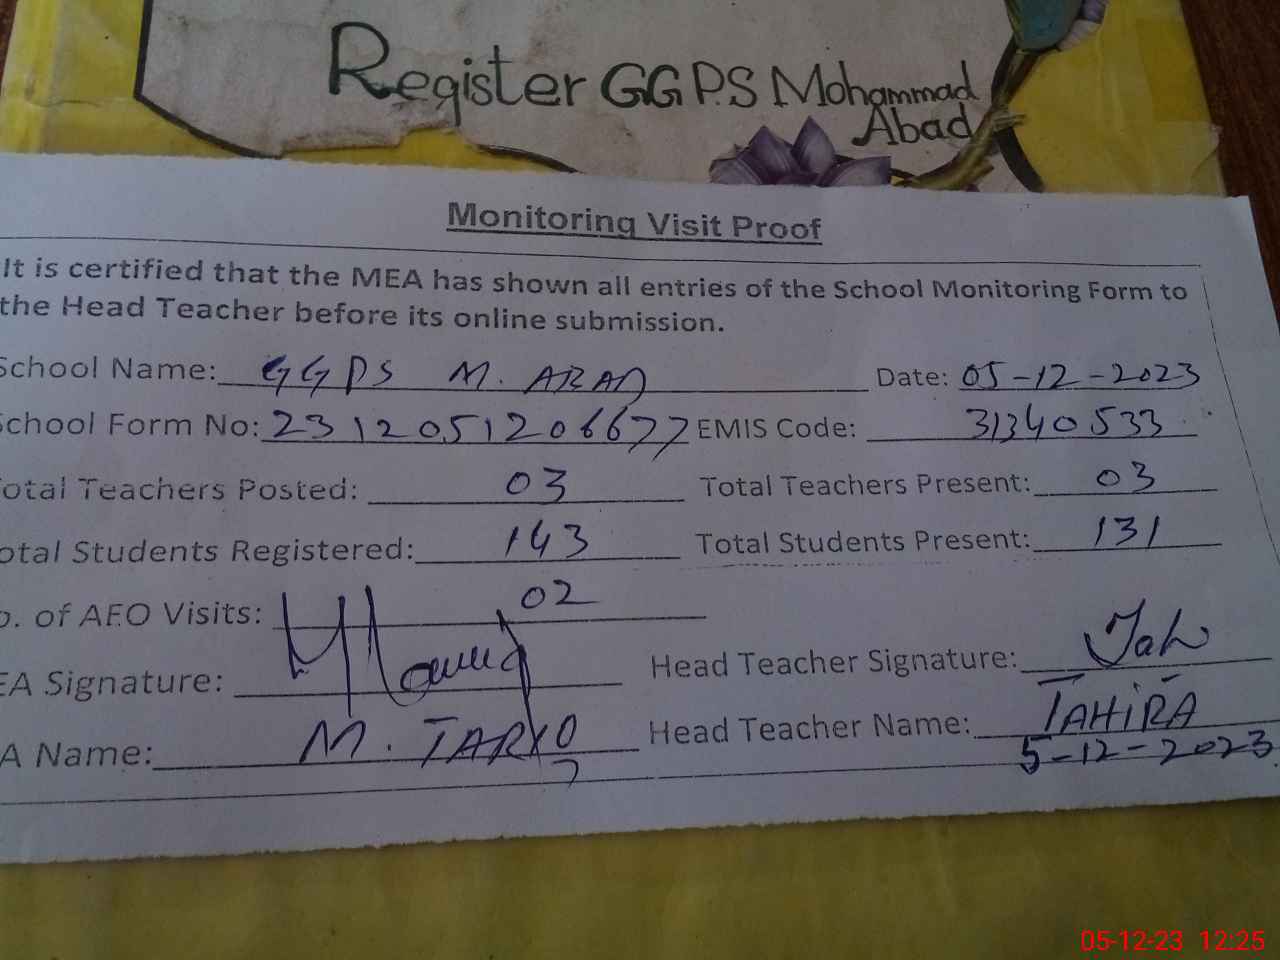 Register GGPS Mohammad
Abad
Monitoring Visit Proof
It is certified that the MEA has shown all entries of the School Monitoring Form to
the Head Teacher before its online submission.
School Name: GGPS M. ABAD Date: 05-12-2023
School Form No: 2312051206677 EMIS Code: 31340533
otal Teachers Posted: 03 Total Teachers Present: 03
otal Students Registered: 143 Total Students Present: 131
o. of AEO Visits: 02
EA Signature: Head Teacher Signature: Tah
A Name: M. TARIQ Head Teacher Name: TAHIRA
5-12-2023
05-12-23 12:25